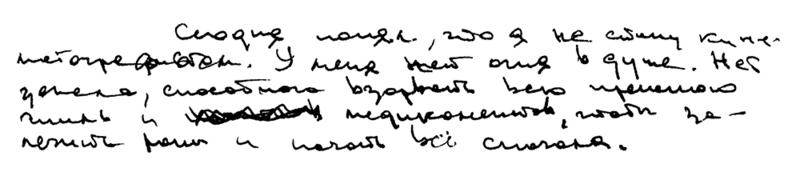 Сегодня понял, что я не стану кине-
матографистом. У меня нет огня в душе. Нет
запала, способного взорвать всю прошлую
жизнь и медикаментов, чтобы за-
лечить раны и начать всё сначала.